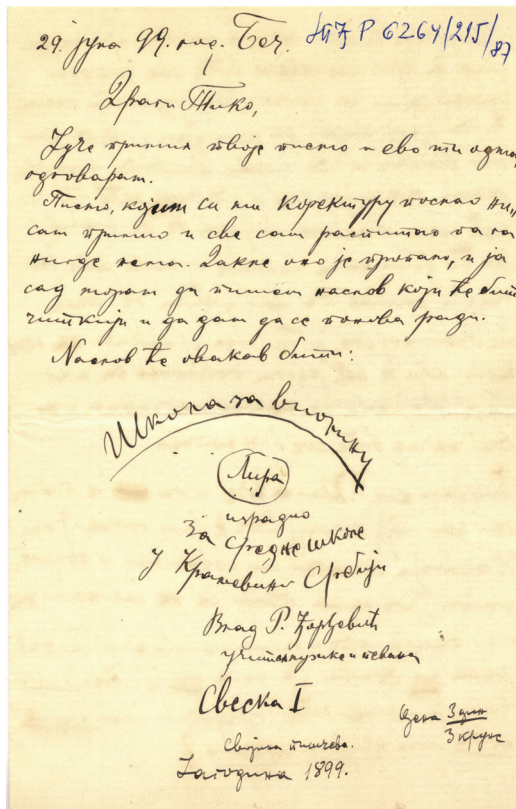 29. јуна 99. год. Беч.
НПЗ Р 6264/215/87
Драги Тико,
Јуче примих твоје писмо и ево ти одма
одговарам.
Писмо, којим си ми коректуру послао ни-
сам примио и све сам распитао па га
нигде нема. Дакле оно је пропало, и ја
сад морам да пишем наслов који ће бити
читкији и да дам да се понова ради.
Наслов ће овакав бити:
Школа за виолину
Лира
израдио
за средње школе
у Краљевини Србији
Влад. Р. Ђорђевић
учитељ музике и певања
Свеска I
Цена 3 дин
3 круне
Својина пишчева.
Јагодина 1899.